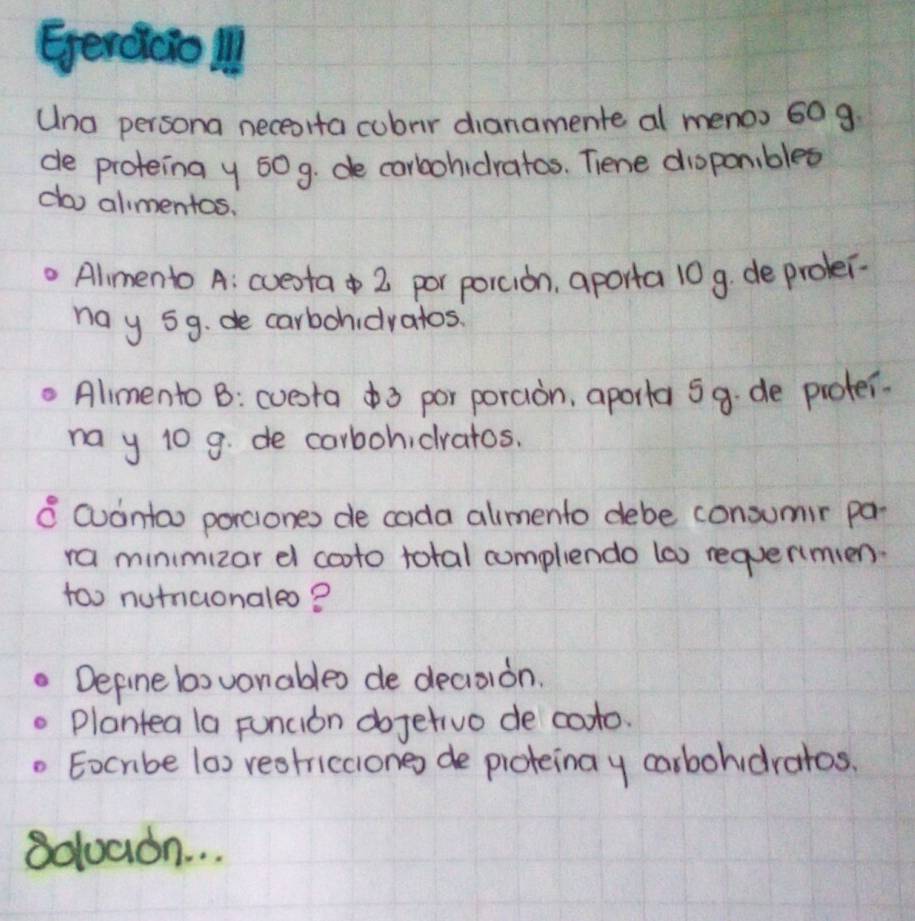 Ejercicio !!!
Una persona necesita cubrir diariamente al menos 60 g.
de proteína y 50 g. de carbohidratos. Tiene disponibles
dos alimentos.
• Alimento A: cuesta $ 2 por porción, aporta 10 g. de proteí-
na y 5 g. de carbohidratos.
• Alimento B: cuesta $3 por porción, aporta 5 g. de proteí-
na y 10 g. de carbohidratos.
¿ Cuántas porciones de cada alimento debe consumir pa-
ra minimizar el costo total cumpliendo los requerimien-
tos nutricionales?
• Define las variables de decisión.
• Plantea la función objetivo de costo.
• Escribe las restricciones de proteína y carbohidratos.
Solución...